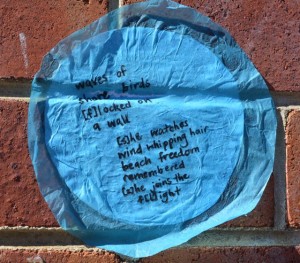 waves of
shore birds
[f]locked on
a wall
[s]he watches
wind whipping hair
beach freedom
remembered
(s)he joins the
f(l)ight